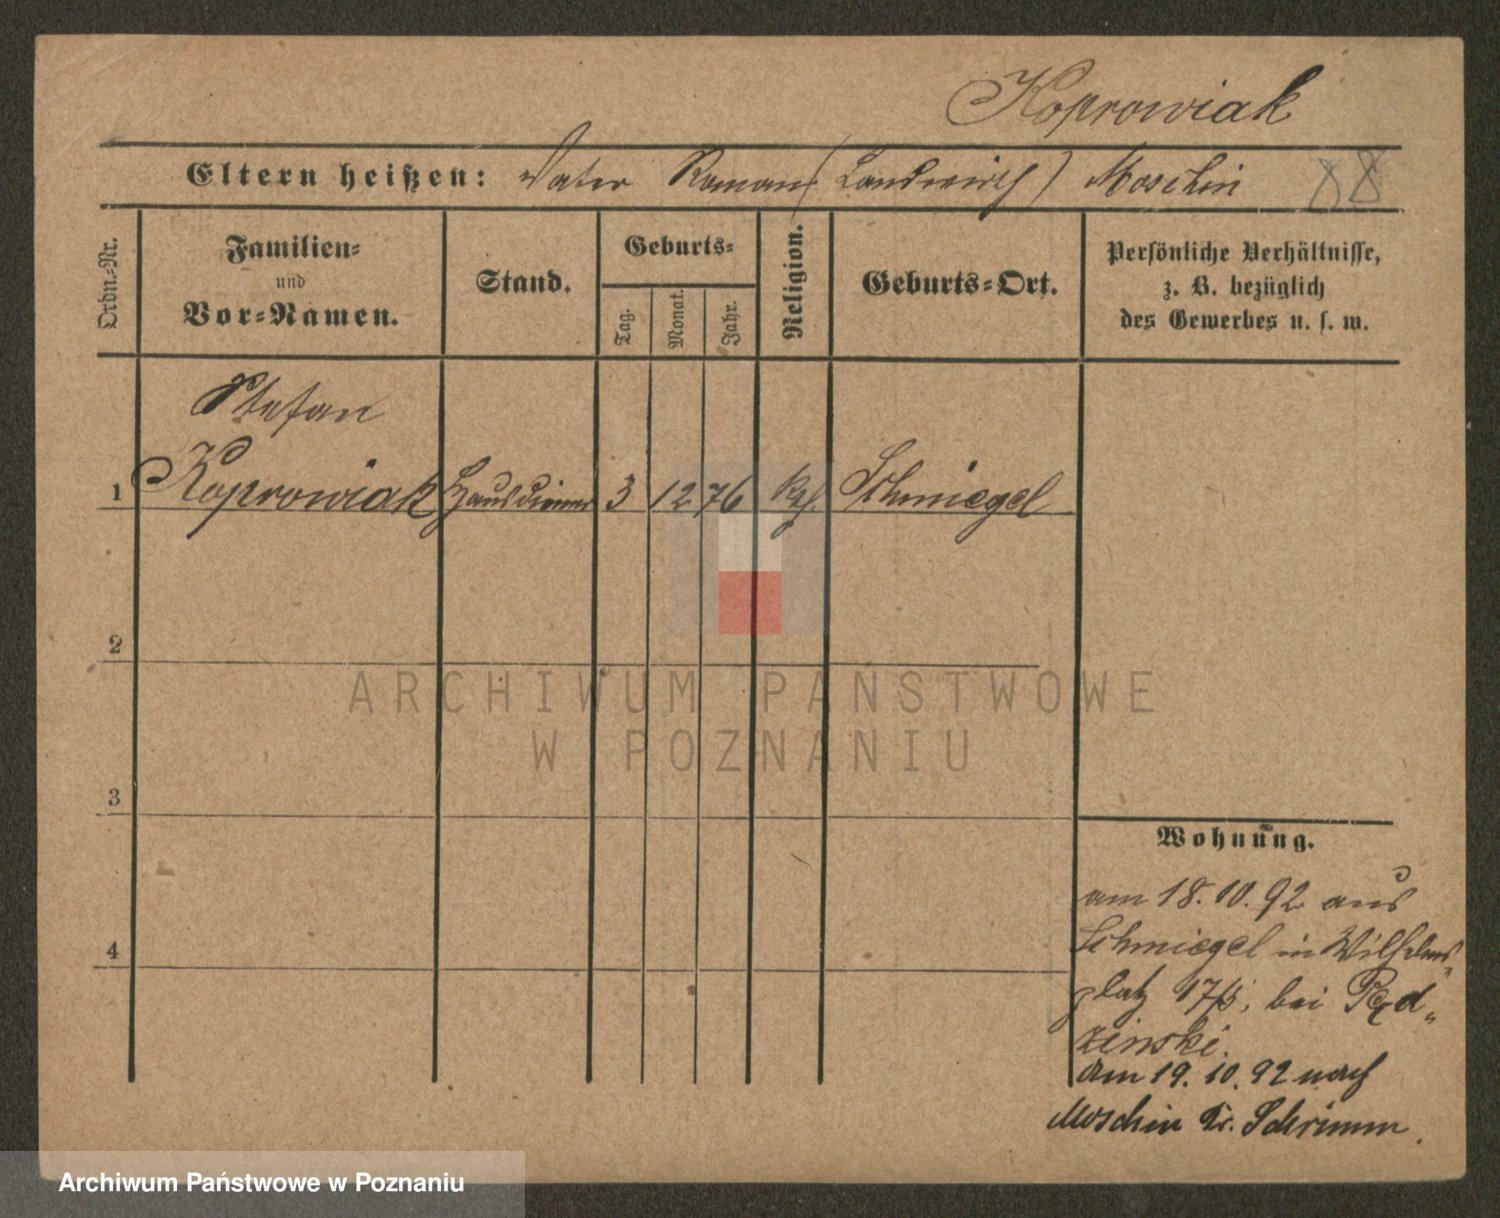 Koprowiak
Eltern heißen: Vater Roman (Landwirth) Moschin
88
Ordn.-Nr.
Familien-
und
Vor-Namen.
Stand.
Geburts-
Tag.
Monat.
Jahr.
Religion.
Geburts-Ort.
Persönliche Verhältnisse,
z. B. bezüglich
des Gewerbes u. s. w.
Stefan
1 Koprowiak Hausdiener 3 12 76 kth. Schmiegel
2
ARCHIWUM PAŃSTWOWE
W POZNANIU
3
Wohnung.
am 18.10.92 aus
Schmiegel in Wilhelms-
platz 17/ bei Pęd-
zinski.
4
am 19.10.92 nach
Moschin Kr. Schrimm.
Archiwum Państwowe w Poznaniu